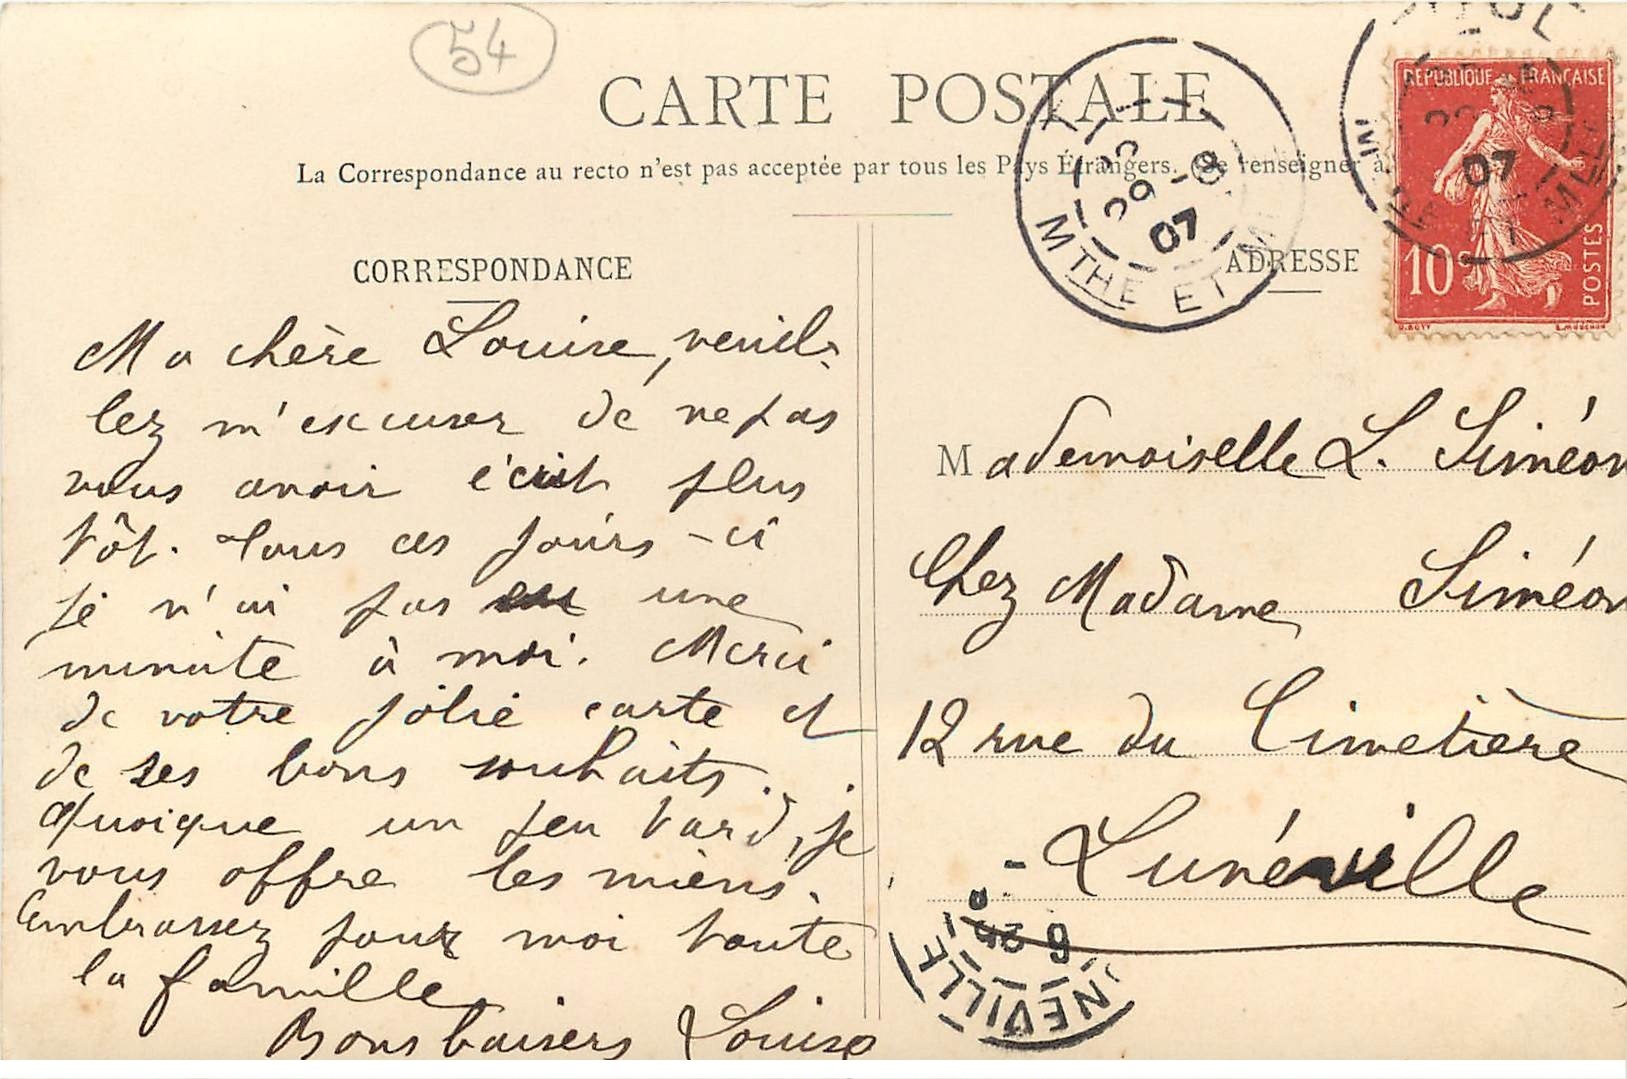 54
CARTE POSTALE
La Correspondance au recto n'est pas acceptée par tous les Pays Étrangers. Se renseigner à
CORRESPONDANCE
Ma chère Louise, veuil-
lez m'excuser de ne pas
vous avoir écrit plus
tôt. Tous ces jours-ci
je n'ai pas eu une
minute à moi. Merci
de votre jolie carte et
de ses bons souhaits.
Quoique un peu tard, je
vous offre les miens.
Embrassez pour moi toute
la famille
Bons baisers Louise
ADRESSE
Mademoiselle L. Siméon
Chez Madame Siméon
12 rue du Cimetière
Lunéville
REPUBLIQUE FRANÇAISE
10c
POSTES
O. ROTY
E. MOUCHON
07
MTHE ET M
07
NEVILLE